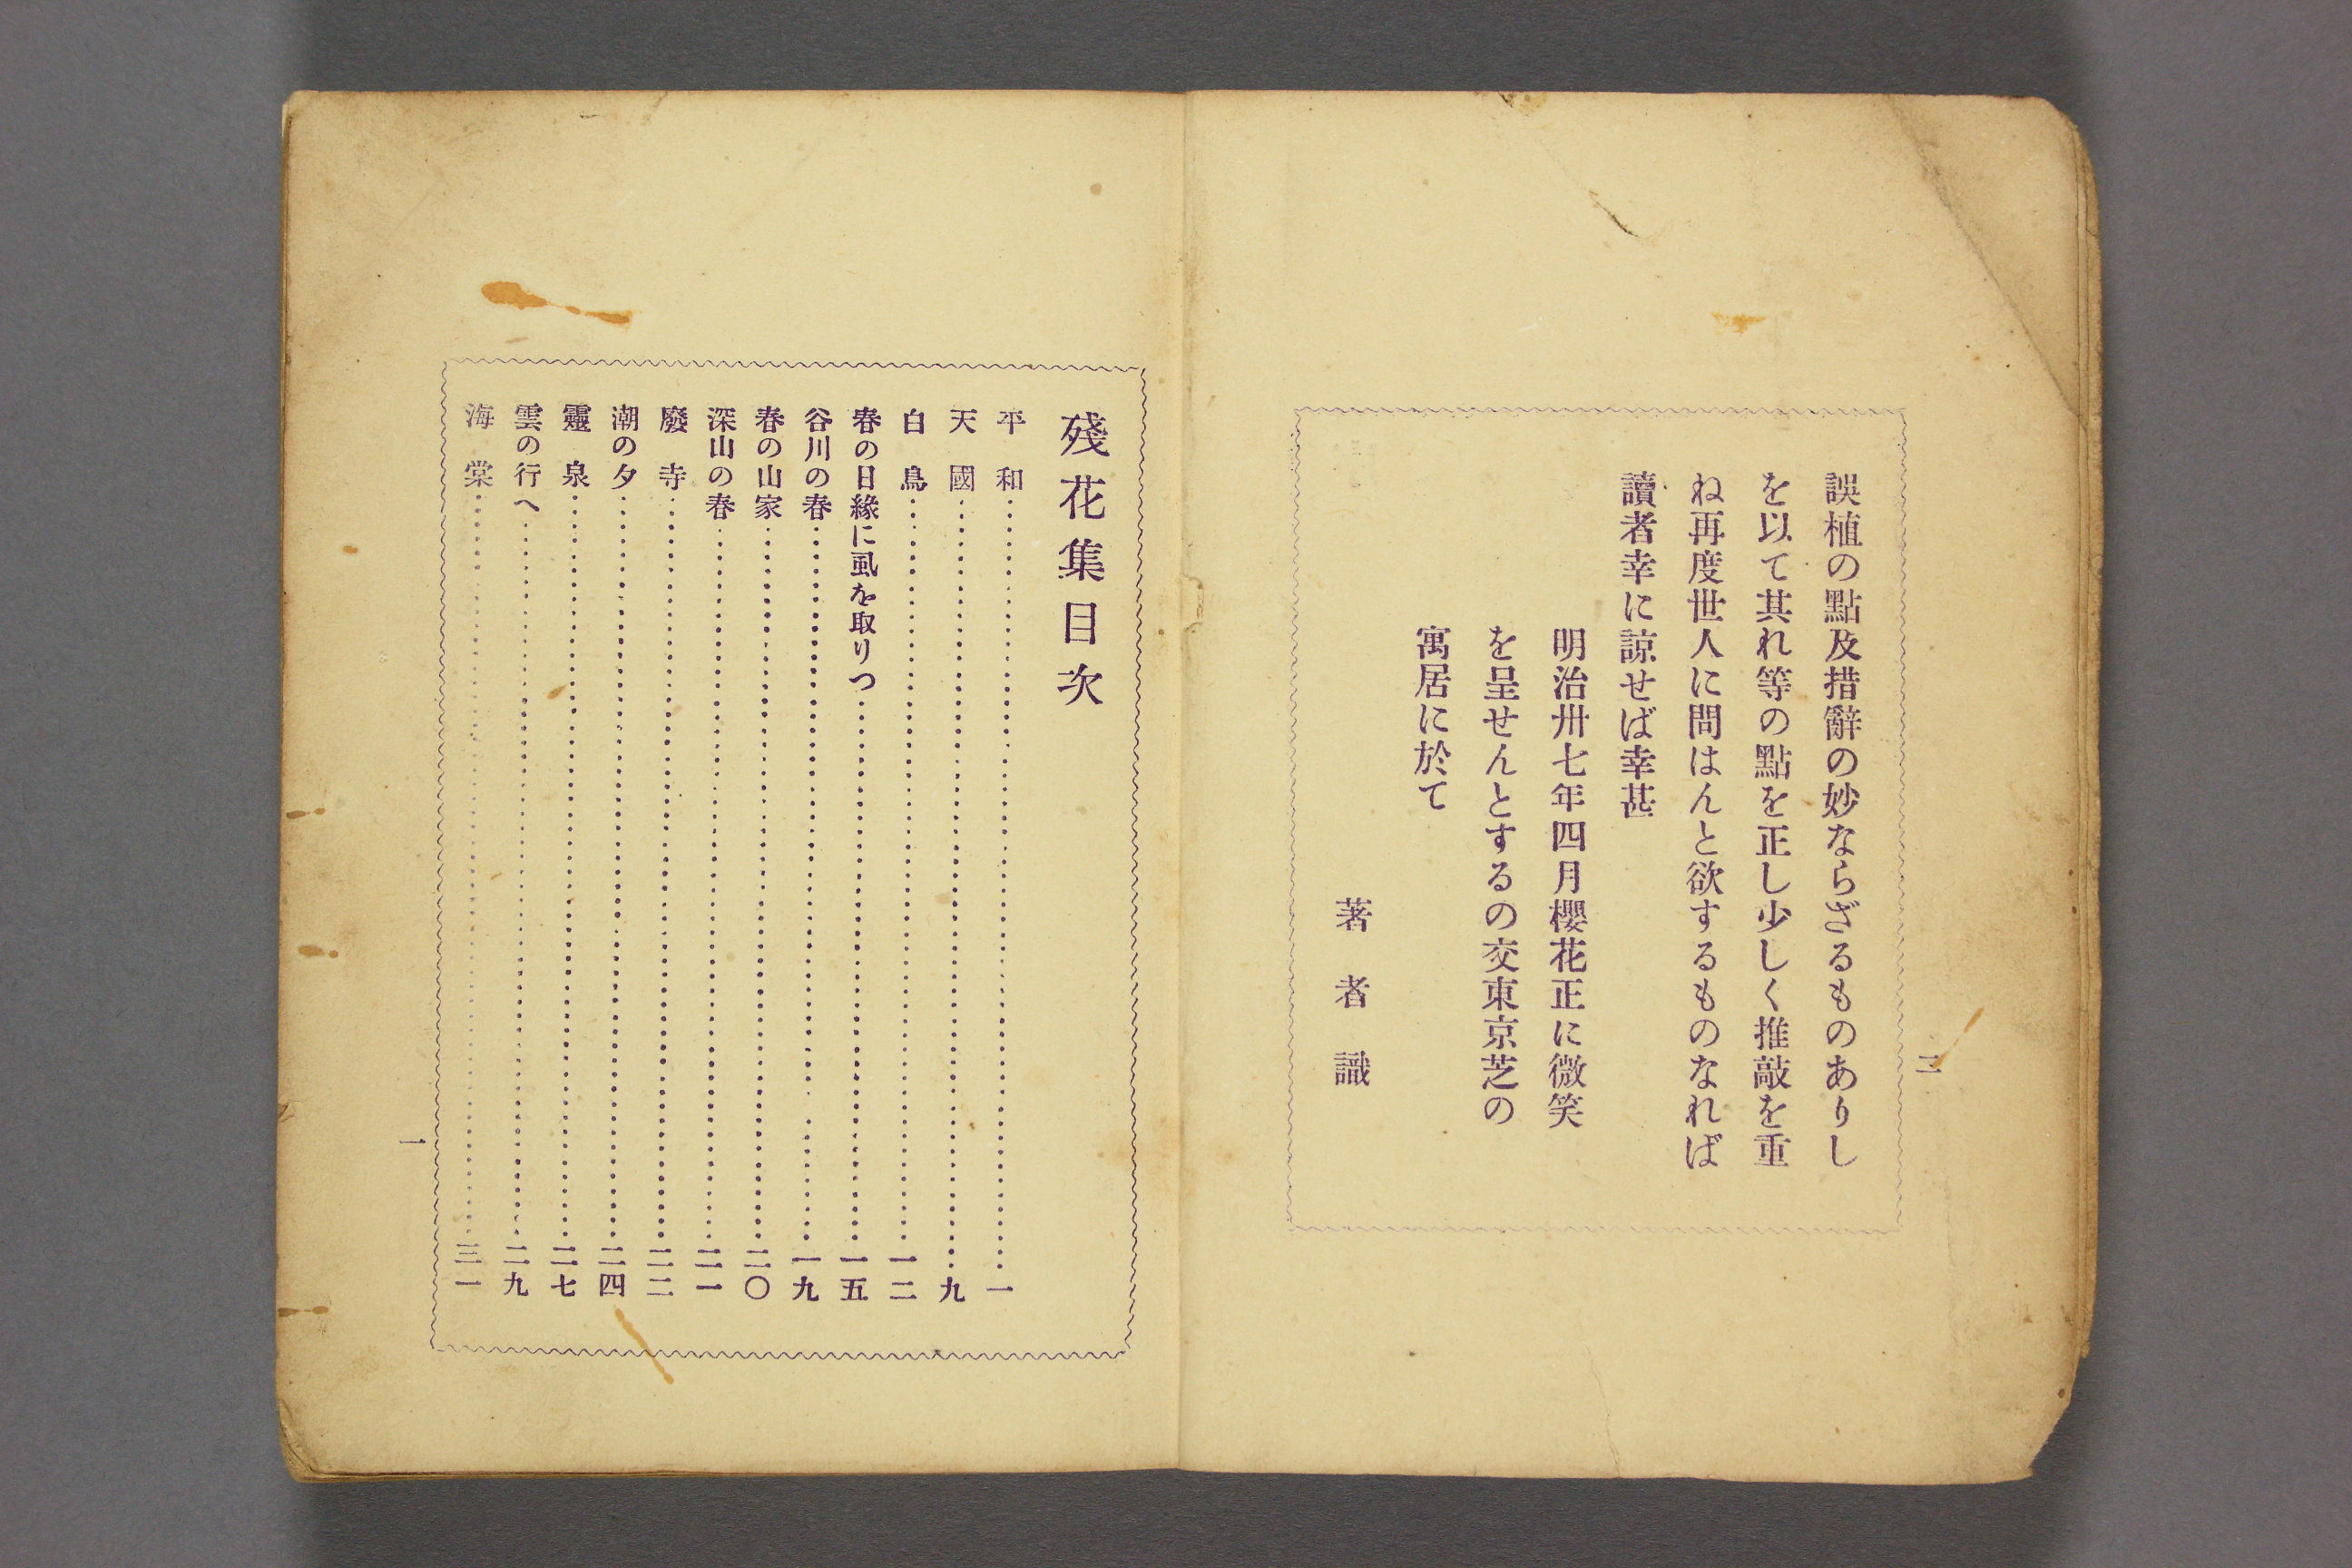 二
誤植の點及措辭の妙ならざるものありし
を以て其れ等の點を正し少しく推敲を重
ね再度世人に問はんと欲するものなれば
讀者幸に諒せば幸甚
明治卅七年四月櫻花正に微笑
を呈せんとするの交東京芝の
寓居に於て
著者識
殘花集目次
平和……一
天國……九
白鳥……一二
春の日緣に虱を取りつ……一五
谷川の春……一九
春の山家……二〇
深山の春……二一
廢寺……二二
潮の夕……二四
靈泉……二七
雲の行へ……二九
海棠……三一
一